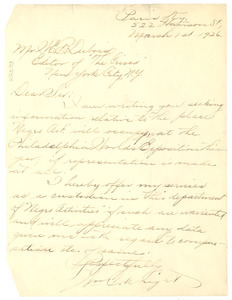 Paris
222
March 1st 1926
Mr. W.E.B. Dubois
Editor of The Crisis
New York City N.Y.
Dear Sir:
I am writing you seeking
information relative to the place
Negro Art will occupy at the
Philadelphia World's Exposition this
year, if representation is made
at all.
I hereby offer my services
as a custodian in this department
of Negro Activities if such are warranted
and will appreciate any data
you give me with regard to compen-
sation etc. of same.
Respectfully
Wm. C. Wright